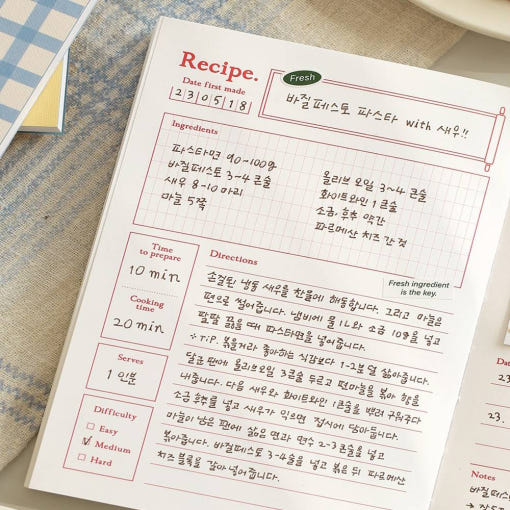 Recipe.
Fresh
Date first made
230518
바질페스토 파스타 with 새우!!
Ingredients
파스타면 90~100g
바질페스토 3~4 큰술
새우 8-10 마리
마늘 5쪽
올리브 오일 3~4 큰술
화이트와인 1 큰술
소금, 후추 약간
파르메산 치즈 간 것
Fresh ingredient
is the key.
Time
to prepare
10 min
Cooking
time
20 min
Serves
1 인분
Difficulty
Easy
Medium
Hard
Directions
손걸된 냉동 새우를 찬물에 해동합니다. 그리고 마늘은
편으로 썰어줍니다. 냄비에 물 1L와 소금 10g을 넣고
팔팔 끓을 때 파스타면을 넣어줍니다.
TiP. 볶을거라 좋아하는 식감보다 1-2분 덜 삶아줍니다.
달군 팬에 올리브오일 3큰술 두르고 편마늘을 볶아 향을
내줍니다. 다음 새우와 화이트와인 1큰술을 뿌려 구워주다
소금 후추를 넣고 새우가 익으면 접시에 담아둡니다.
마늘이 남은 팬에 삶은 면과 면수 2-3큰술을 넣고
볶아줍니다. 바질페스토 3-4술을 넣고 볶은 뒤 파르메산
치즈 갈아 넣어줍니다.
Da
23.
23.
Notes
바질페